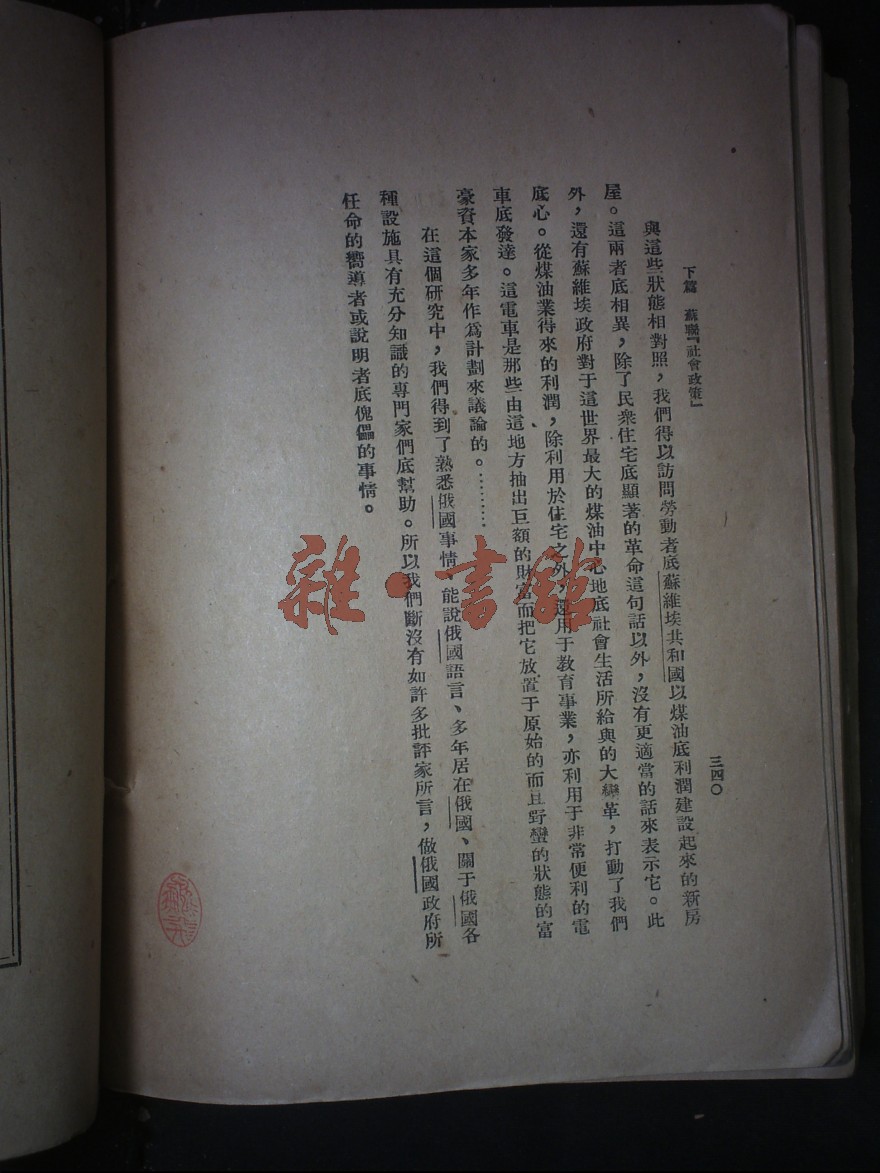 下篇　蘇聯「社會政策」
三四〇
與這些狀態相對照，我們得以訪問勞動者底蘇維埃共和國以煤油底利潤建設起來的新房
屋。這兩者底相異，除了民衆住宅底顯著的革命這句話以外，沒有更適當的話來表示它。此
外，還有蘇維埃政府對于這世界最大的煤油中心地底社會生活所給與的大變革，打動了我們
底心。從煤油業得來的利潤，除利用於住宅之外，還用于教育事業，亦利用于非常便利的電
車底發達。這電車是那些由這地方抽出巨額的財富而把它放置于原始的而且野蠻的狀態的富
豪資本家多年作爲計劃來議論的。………
在這個研究中，我們得到了熟悉俄國事情、能說俄國語言、多年居在俄國、關于俄國各
種設施具有充分知識的專門家們底幫助。所以我們斷沒有如許多批評家所言，做俄國政府所
任命的嚮導者或說明者底傀儡的事情。
雜·書館